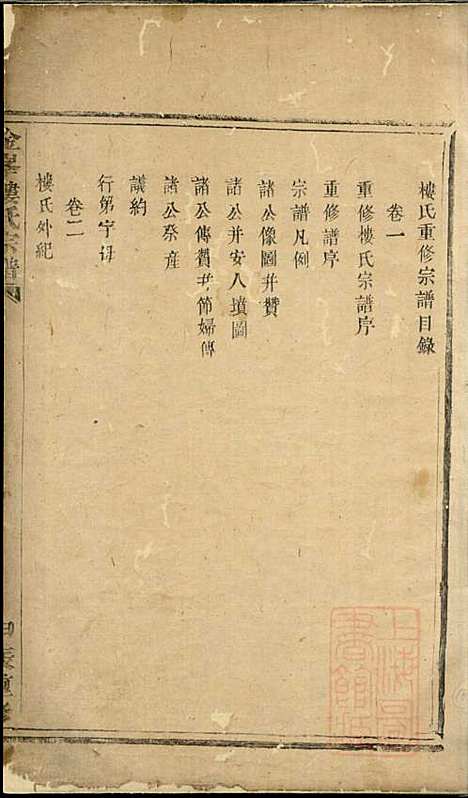 樓氏重修宗譜目錄
卷一
重修樓氏宗譜序
重修譜序
宗譜凡例
諸公像圖并贊
諸公并安人墳圖
諸公傳贊并節婦傳
諸公祭産
議約
行第字母
卷二
樓氏外紀
樓氏宗譜
上海圖書館藏